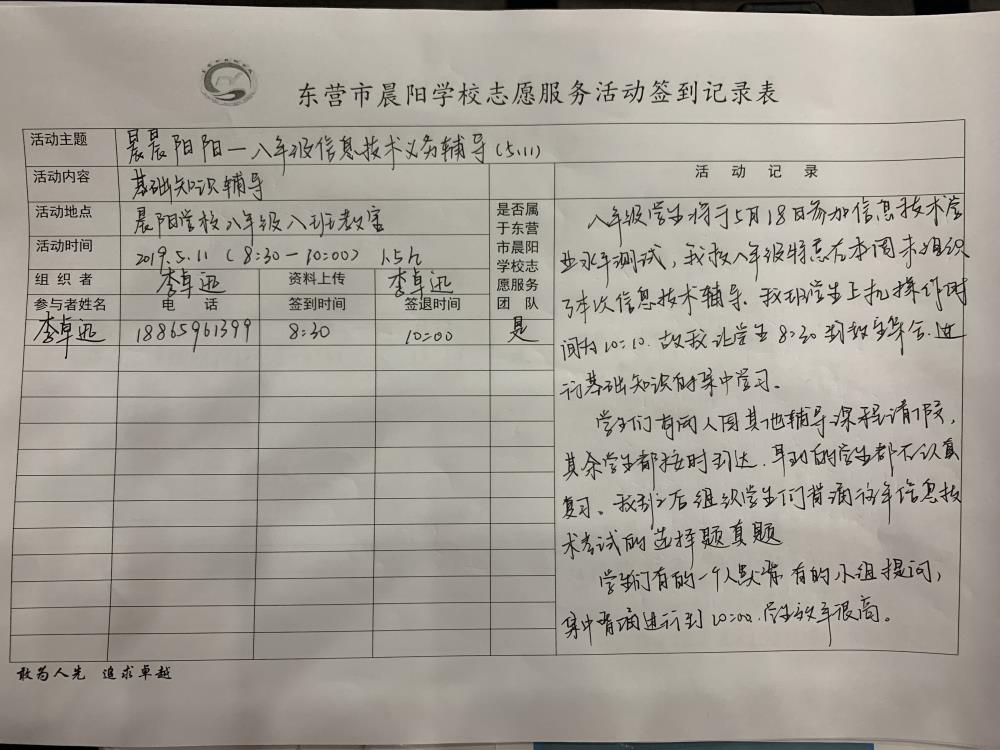 东营市晨阳学校志愿服务活动签到记录表
活动主题 晨晨阳阳一八年级信息技术义务辅导(5.11)
活动内容 基础知识辅导
活动地点 晨阳学校八年级八班教室
活动时间 2019.5.11(8:30-10:00) 1.5h
组织者 李卓迅 资料上传 李卓迅
是否属
于东营
市晨阳
学校志
愿服务
团队
参与者姓名 电话 签到时间 签退时间
李卓迅 18865961399 8:30 10:00 是
活动记录
八年级学生将于5月18日参加信息技术学
业水平测试,我校八年级特意在本周末组织
了本次信息技术辅导。我班学生上机操作时
间为10:10.故我让学生8:30到教室集合.进
行基础知识的集中学习。
学生们有两人因其他辅导课程请假,
其余学生都按时到达.早到的学生都在认真
复习、我到之后组织学生们背诵往年信息技
术考试的选择题真题
学生们有的一个人默背有的小组提问,
集中背诵进行到10:00.学生效率很高。
敢为人先 追求卓越